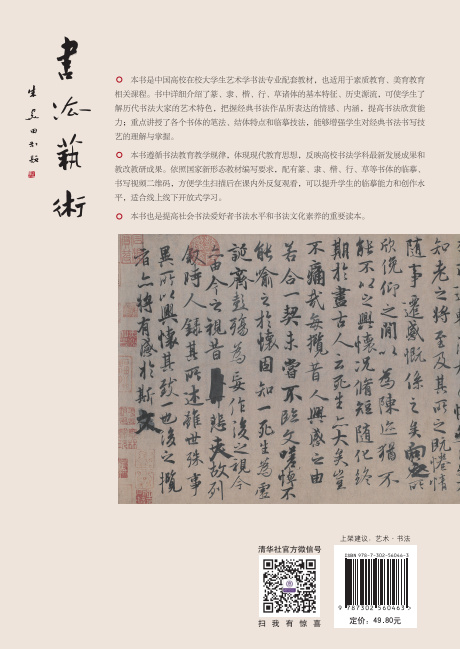 書法藝術
本书是中国高校在校大学生艺术学书法专业配套教材，也适用于素质教育、美育教育
相关课程。书中详细介绍了篆、隶、楷、行、草诸体的基本特征、历史源流，可使学生了
解历代书法大家的艺术特色，把握经典书法作品所表达的情感、内涵，提高书法欣赏能
力；重点讲授了各个书体的笔法、结体特点和临摹技法，能够增强学生对经典书法书写技
艺的理解与掌握。
本书遵循书法教育教学规律，体现现代教育思想，反映高校书法学科最新发展成果和
教改教研成果。依照国家新形态教材编写要求，配有篆、隶、楷、行、草等书体的临摹、
书写视频二维码，方便学生扫描后在课内外反复观看，可以提升学生的临摹能力和创作水
平，适合线上线下开放式学习。
本书也是提高社会书法爱好者书法水平和书法文化素养的重要读本。
知老之將至及其所之既惓情
隨事遷感慨係之矣向之所
欣俛仰之閒以為陳迹猶不
能不以之興懷況脩短隨化終
期於盡古人云死生亦大矣豈
不痛哉每攬昔人興感之由
若合一契未嘗不臨文嗟悼不
能喻之於懷固知一死生為虛
誕齊彭殤為妄作後之視今
亦由今之視昔悲夫故列
敘時人錄其所述雖世殊事
異所以興懷其致一也後之攬
者亦將有感於斯文
清华社官方微信号
扫我有惊喜
上架建议：艺术·书法
ISBN 978-7-302-56046-3
9 787302 560463 >
定价：49.80元